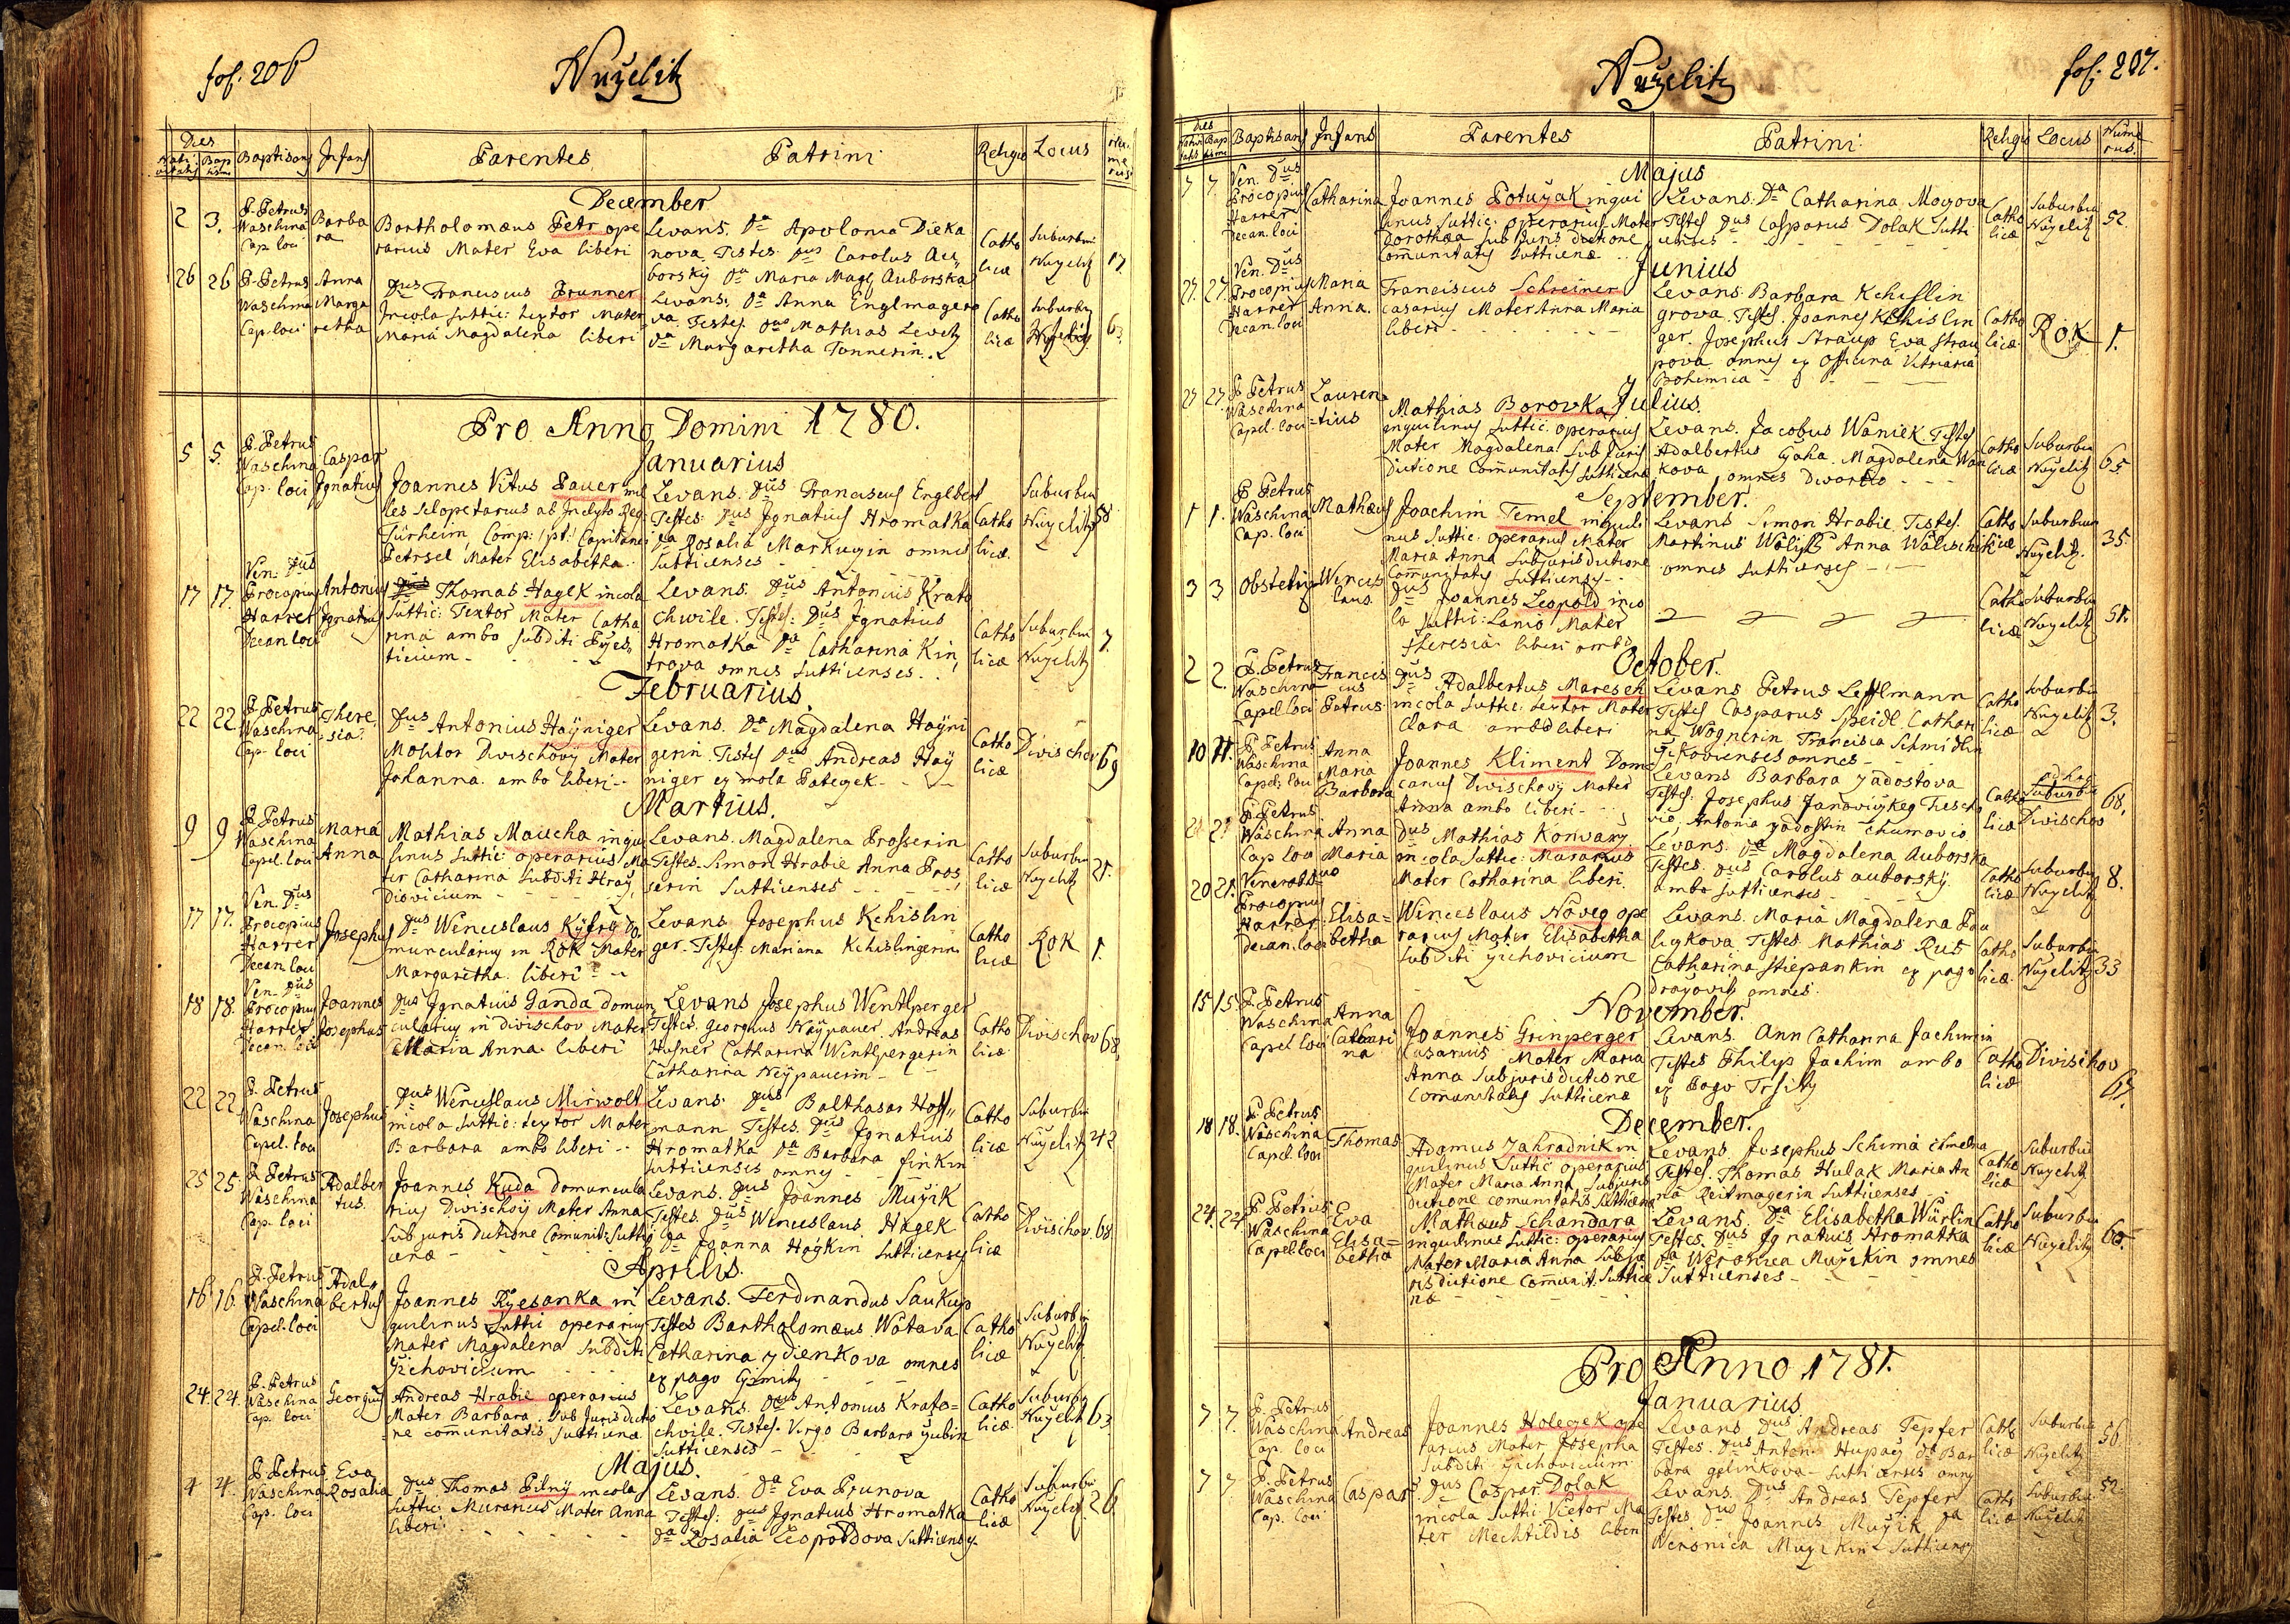 fol. 206
Nuželitz
Dies
Nati vitatis
Bap tismi
Baptisans
Infans
Parentes
Patrini
Religio
Locus
Nu me rus
December
2 3. P. Petrus Waschina Cap. loci
Barba ra
Bartholomæus Petr ope
rarius Mater Eva liberi
Levans. Da Apolonia Dieka
nova. Testes. Dus Carolus Au
borský Da Maria Magd. Auborska
Catho licæ
Suburbiu Nuželitz
17.
26 26 P. Petrus Waschina Cap. loci
Anna Marga retha
Dus Franciscus Prunner
Incola Suttic: textor Mater
Maria Magdalena liberi
Levans. Da Anna Englmagero
va. Testes. Dus Mathias Levitz
Da Margaretha Tonnerin.
Catho licæ
Suburbiu Nuželitz
63.
Pro Anno Domini 1780.
Januarius
5 5. P. Petrus Waschina Cap. loci
Caspar Ignatius
Joannes Vitus Pauer mi
les sclopetarius ab Inclyto Reg:
Türheim Comp: pt: Capitanei
Petrsel Mater Elisabetha.
Levans. Dus Franciscus Englbert
Testes: Dus Ignatius Hromatka
Da Rosalia Markuzin omnes
Sutticenses
Catho licæ.
Suburbiu Nuželitz
58
17 17. Ven. Dus Procopius Harrer Decan. loci
Antonius Ignatius
Thomas Hagek incola
Suttic: Textor Mater Catha
rina ambo subditi Byes
ticium
Levans. Dus Antonius Krato
chwile. Testes: Dus Ignatius
Hromatka Da Catharina Kin
trova omnes Sutticenses.
Catho licæ
Suburbiu Nuželitz
7.
Februarius
22 22 P. Petrus Waschina Cap. loci
There sia
Dus Antonius Haÿniger
Molitor Divischovÿ Mater
Johanna ambo liberi
Levans. Da Magdalena Haÿni
gerin. Testes Dus Andreas Haÿ
niger ex mola Pategek
Catho licæ
Divischov
69
Martius.
9 9 P. Petrus Waschina Capel. loci
Maria Anna
Mathias Maucha inqui
linus Suttic: operarius Ma
ter Catharina Subditi Hraÿ
Diovicium
Levans. Magdalena Prosserin
Testes. Simon Hrabie Anna Pros
serin Sutticenses
Catho licæ
Suburbiu Nuželitz
21.
17 17. Ven. Dus Procopius Harrer Decan. loci
Josephus
Dus Wenceslaus Kÿfrÿ do
muncularius in Rok Mater
Margaretha liberi
Levans Josephus Kchislin
ger. Testes Mariana Kchislingerin
Catho licæ
Rok
1.
18 18. Ven. Dus Procopius Harrer Decan. loci
Joannes Josephus
Dus Ignatius Ganda domun
cularius in Divischov Mater
Maria Anna liberi
Levans Josephus Wentlperger
Testes. Georgius Naÿpauer. Andreas
Hufner Catharina Wentlpergerin
Catharina Neÿpauerin
Catho licæ
Divischov
68
22 22 P. Petrus Waschina Capel. loci
Josephus
Dus Wenceslaus Mirwolt
incola Suttic: textor Mater
Barbara ambo liberi
Levans. Dus Balthasar Hoff
mann Testes. Dus Ignatius
Hromatka Da Barbara finkin
Sutticenses omnes
Catho licæ
Suburbiu Nuželitz
42
25 25. P. Petrus Waschina Cap. loci
Adalber tus.
Joannes Kuda domuncula
rius Divischoÿ Mater Anna
Sub jurisdictione Comunit: Sutti
cenæ
Levans. Dus Joannes Mužik
Testes. Dus Wenceslaus Hagek
Da Joanna Hagkin Sutticenses
Catho licæ
Divischov
68
Aprilis.
16 16. P. Petrus Waschina Capel. loci
Adal bertus
Joannes Ržesanka in
quilinus Suttic operarius
Mater Magdalena Subditi
Žichovicium
Levans. Ferdinandus Saukup
Testes Bartholomæus Wotava
Catharina zdienkova omnes
ex pago Gimitz
Catho licæ
Suburbiu Nuželitz
24. 24. P. Petrus Waschina Cap. loci
Georgius
Andreas Hrabie operarius
Mater Barbara. Sub Jurisdictio
ne comunitatis Sutticenæ
Levans. Dus Antonius Krato=
chwile. Testes. Virgo Barbara
Sutticenses
Catho licæ.
Suburbiu Nuželitz
63.
Majus.
4 4. P. Petrus Waschina Cap. loci
Eva Rosalia
Dus Thomas Pilnÿ incola
Suttic: Murarius Mater Anna
liberi
Levans. Da Eva Prunova
Testes: Dus Ignatius Hromatka
Da Rosalia Leopoldova Sutticenses
Catho licæ
Suburbiu Nuželitz
26.
Nuželitz
fol. 207.
Dies
Nativi tatis
Bap tismi
Baptisans
Infans
Parentes
Patrini:
Religio
Locus
Nume rus.
Majus
7 7. Ven. Dus Procopius Harrer Decan. loci
Catharina
Joannes Potužak inqui
linus Suttic: operarius Mater
Dorothæa Sub Jurisdictione
Comunitatis Sutticenæ
Levans: Da Catharina Mozova
Testes Dus Casparus Dolak Sutti
censes
Catho licæ
Suburbiu Nuželitz
52.
Junius
27. 27. Ven. Dus Procopius Harrer Decan. loci
Maria Anna.
Franciscus Schreiner
casarius Mater Anna Maria
liberi
Levans: Barbara Kchislin
grova. Testes. Joannes Kchislin
ger. Josephus Straup Eva Strau
pova omnes ex officina Vitriaria
Bohemica
Catho licæ
Rok
1.
Julius.
27 27. P. Petrus Waschina Capel. loci
Lauren =tius
Mathias Borovka
inquilinus Suttic. operarius
Mater Magdalena Sub Juris
dictione Comunitatis Sutticenæ
Levans. Jacobus Waniek Testes
Adalbertus Gaha. Magdalena Wan
kova omnes Dworcio
Catho licæ
Suburbiu Nuželitz
65
September.
1 1. P. Petrus Waschina Cap. loci
Mathæus
Joachim Temel inquili
nus Suttic: operarius Mater
Maria Anna subjurisdictione
Comunitatis Sutticensis
Levans Simon Hrabie. Testes.
Martinus Wolish Anna Wolischi
omnes Sutticenses
Catho licæ
Suburbium Nuželitz.
35.
3 3 Obstetrix
Wences laus.
Dus Joannes Leopold inco
la Suttic: Lanio Mater
Theresia liberi ambo
Catho licæ
Suburbiu Nuželitz
51.
October.
2 2. P. Petrus Waschina Capel. loci
Francis cus Petrus
Dus Adalbertus Maresch
incola Suttic: textor Mater
Clara ambo liberi
Levans Petrus Lefflmann
Testes Casparus Speidl. Cathari
na Wognerin Francisca Schmidlin
omnes
Catho licæ
Suburbiu Nuželitz
3.
10 11. P. Petrus Waschina Capel. loci
Anna Maria Barbara
Joannes Kliment Dom
canus Divischoÿ Mater
Anna ambo liberi
Levans Barbara zadostova
Testes: Josephus
Antonia zadostin
Catho licæ
Divischov
68.
21 21 P. Petrus Waschina Cap. loci
Anna Maria
Dus Mathias Konvarz
incola Suttic: Murarius
Mater Catharina liberi.
Levans. Da Magdalena Auborska
Testes. Dus Carolus Auborský.
ambo Sutticenses
Catho licæ
Suburbiu Nuželitz
8.
20 21. Venerab. Dus Procopius Harrer Decan. loci
Elisa= betha
Wenceslaus Noveg ope
rarius Mater Elisabetha
subditi Žichovicium
Levans. Maria Magdalena
Testes. Mathias Rus
Catharina Stiepankin ex pago
omnes.
Catho licæ.
Suburbiu Nuželitz
33
November.
15 15. P. Petrus Waschina Capel. loci
Anna Cathari na
Joannes Grinperger
Casarius Mater Maria
Anna Subjurisdictione
Comunitatis Sutticenæ
Levans. Ann Catharina Jachimin
Testes Philip Jachim ambo
ex Pago Trsitz
Catho licæ
Divischov
67.
December.
18 18. P. Petrus Waschina Capel. loci
Thomas
Adamus Zahradnik in
quilinus Suttic operarius
Mater Maria Anna Subjuris
dictione comunitatis Sutticenæ
Levans. Josephus Schima
Testes. Thomas Hulak Maria An
na Reitmagerin Sutticenses
Catho licæ
Suburbiu Nuželitz
24. 24 P. Petrus Waschina Capel. loci
Eva Elisa= betha
Mathæus Schandara
inquilinus Suttic: operarius
Mater Maria Anna Subju
risdictione Comunit. Suttice
næ
Levans. Da Elisabetha Würlin
Testes. Dus Ignatius Hromatka
Da Weronica Mužikin omnes
Sutticenses
Catho licæ
Suburbiu Nuželitz
Pro Anno 1781.
Januarius
7. 7. P. Petrus Waschina Cap. loci
Andreas
Joannes Holegek ope
rarius Mater Josepha
Subditi Žichovicium
Levans Dus Andreas Tepfer
Testes. Dus Anton. Hupaÿ Da Bar
bara golinkova Sutticenses omnes
Catho licæ
Suburbiu Nuželitz
56
7 7 P. Petrus Waschina Cap. loci
Caspar
Dus Caspar Dolak
incola Suttic Victor Ma
ter Mechtildis liberi
Levans. Dus Andreas Tepfer
Testes Dus Joannes Mužik Da
Weronica Mužikin Sutticenses
Catho licæ
Suburbiu Nuželitz
52